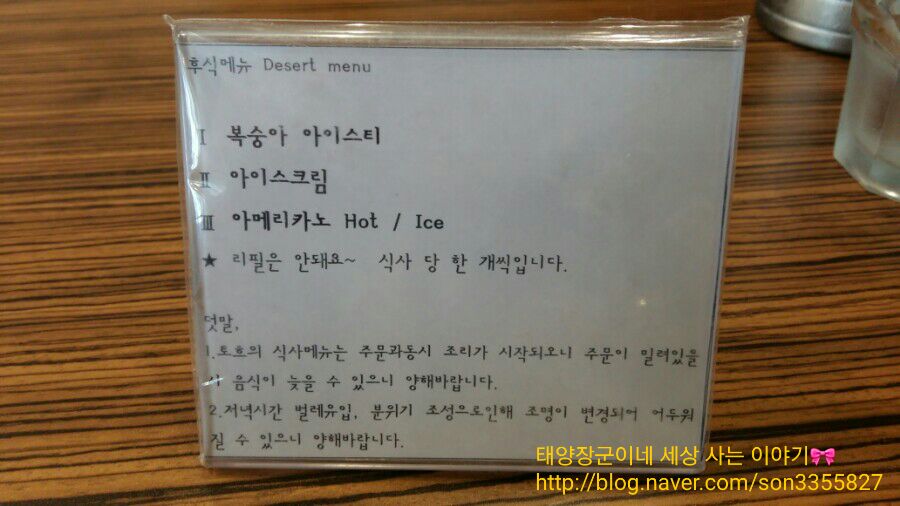 후식메뉴 Desert menu
Ⅰ 복숭아 아이스티
Ⅱ 아이스크림
Ⅲ 아메리카노 Hot / Ice
★ 리필은 안돼요~ 식사 당 한 개씩입니다.
덧말,
1.토호의 식사메뉴는 주문과동시 조리가 시작되오니 주문이 밀려있을
시 음식이 늦을 수 있으니 양해바랍니다.
2.저녁시간 벌레유입, 분위기 조성으로인해 조명이 변경되어 어두워
질 수 있으니 양해바랍니다.
태양장군이네 세상 사는 이야기🎀
http://blog.naver.com/son3355827